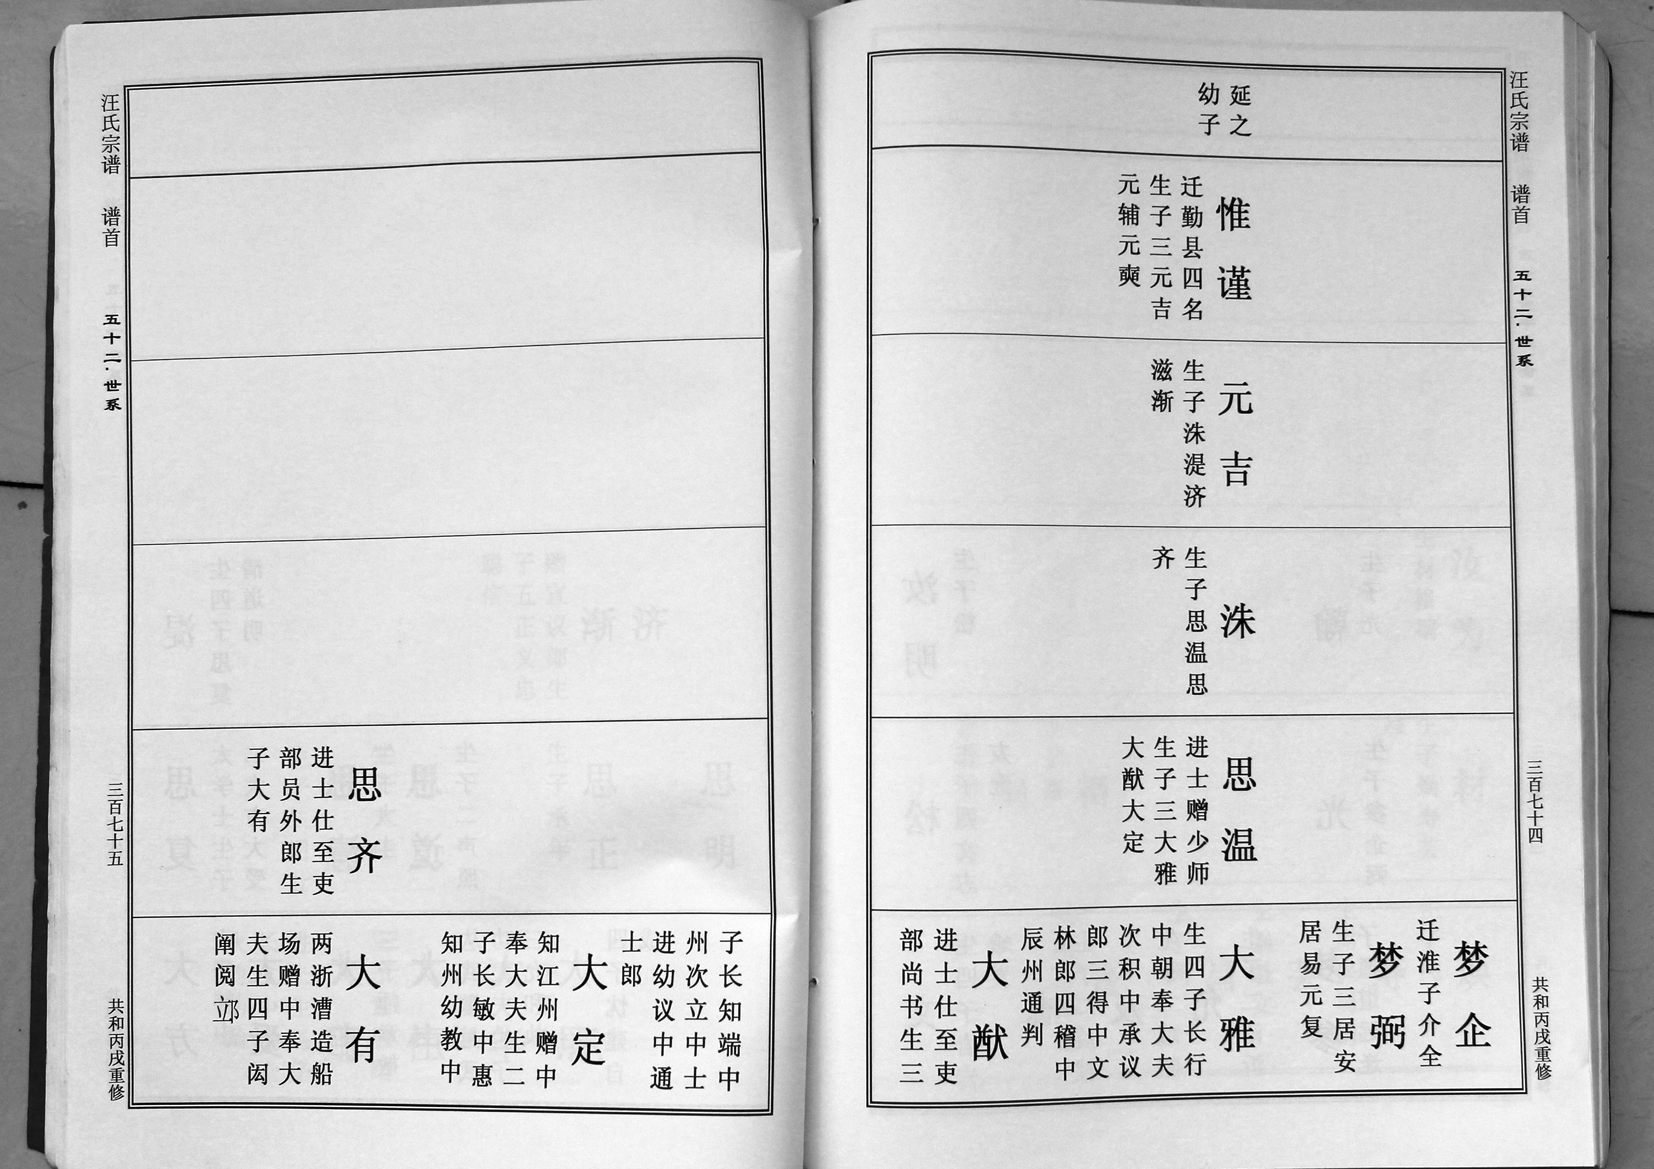 汪氏宗谱 谱首 五十二·世系 三百七十四 共和丙戌重修
延之
幼子
惟谨
迁勤县四名
生子三元吉
元辅元奭
元吉
生子洙湜济
滋渐
洙
生子思温思
齐
思温
进士赠少师
生子三大雅
大猷大定
梦企
迁淮子介全
梦弼
生子三居安
居易元复
大雅
生四子长行
中朝奉大夫
次积中承议
郎三得中文
林郎四稽中
辰州通判
大猷
进士仕至吏
部尚书生三
子长知端中
州次立中士
进幼议中通
士郎
大定
知江州赠中
奉大夫生二
子长敏中惠
知州幼教中
思齐
进士仕至吏
部员外郎生
子大有
大有
两浙漕造船
场赠中奉大
夫生四子闳
阐阅
汪氏宗谱 谱首 五十二·世系 三百七十五 共和丙戌重修